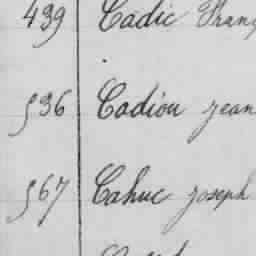 439 Cadic Franç
536 Cadiou jean
567 Cahuc joseph